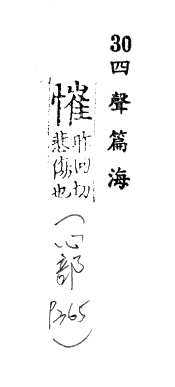 30四聲篇海
慛
昨回切
悲傷也
(心部
P365)